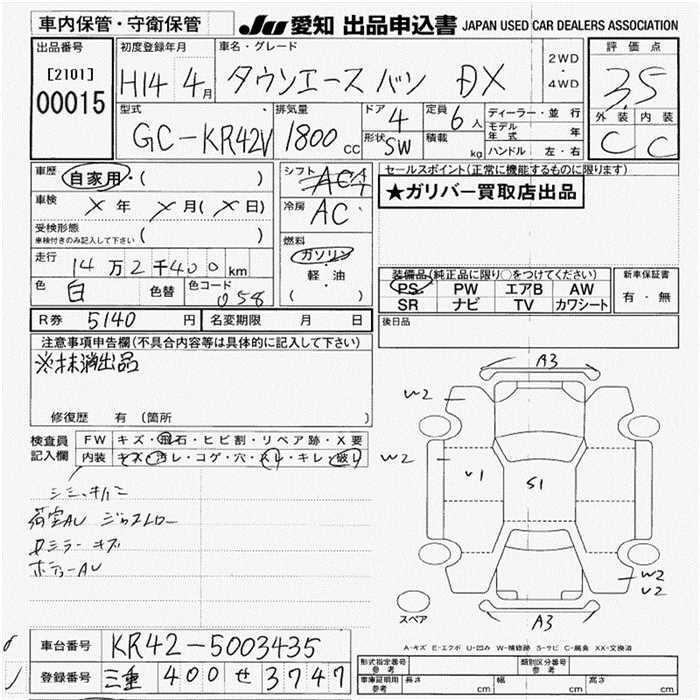 車内保管・守衛保管
JU 愛知 出品申込書 JAPAN USED CAR DEALERS ASSOCIATION
出品番号 初度登録年月 車名・グレード 評価点
[2101] H14 4月 タウンエース バン DX 2WD・4WD 3.5
00015
型式 排気量 ドア 定員 ディーラー・並行 外装 内装
GC-KR42V 1800cc 4 6人 モデル年式 年 C C
形状 SW 積載 kg ハンドル 左・右
車歴 自家用・( ) シフト
セールスポイント(正常に機能するものに限ります)
車検 × 年 × 月( × 日) 冷房 AC
★ガリバー買取店出品
受検形態 ( )
車検付きのみ記入して下さい
燃料 ガソリン 軽・油 ( )
走行 14万2千400km
装備品(純正品に限り○をつけてください) 新車保証書
色 白 色替 色コード 058
PS PW エアB AW 有・無
SR ナビ TV カワシート
R券 5140円 名変期限 月 日
後日品
注意事項申告欄(不具合内容等は具体的に記入して下さい)
※抹消出品
修復歴 有 (箇所 )
検査員記入欄 FW キズ・飛石・ヒビ割・リペア跡・X要
内装 キズ・汚レ・コゲ・穴・スレ・キレ・破レ
シミ、キバミ
荷室AU
Bミラーキズ
ボディーAU
A3
W2
W2
U1
S1
W2
U2
A3
スペア
A-キズ E-エクボ U-凹み W-補修跡 S-サビ C-腐食 XX-交換済
車台番号 KR42-5003435
登録番号 三重 400 せ 3747
型式指定番号 参考 類別区分番号 参考
車庫証明用 参考 長さ cm 幅 cm 高さ cm